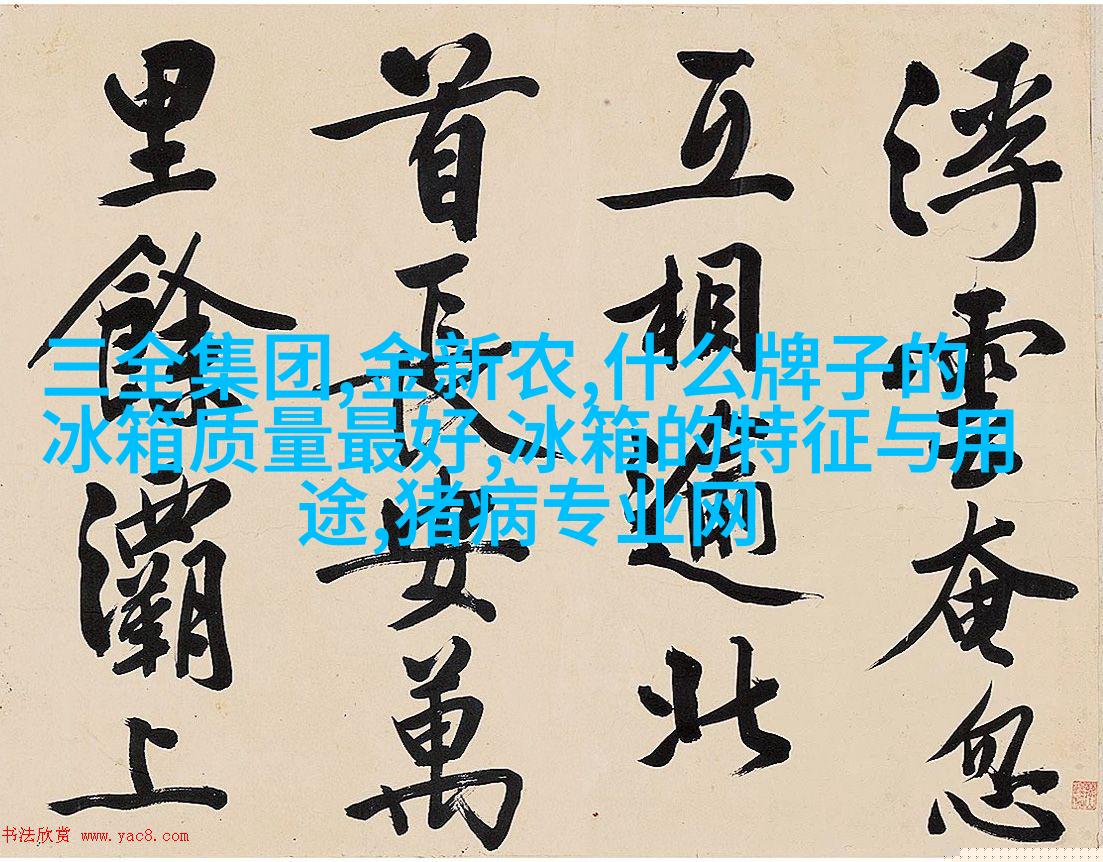 浮雲奄忽
互相踰北
首長安萬
里餘灞上
三全集团,金新农,什么牌子的
冰箱质量最好,冰箱的特征与用
途,猪病专业网
书法欣赏 www.yac8.com